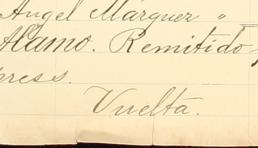 Angel Márquez "
Alamo. Remitido
press.
Vuelta.